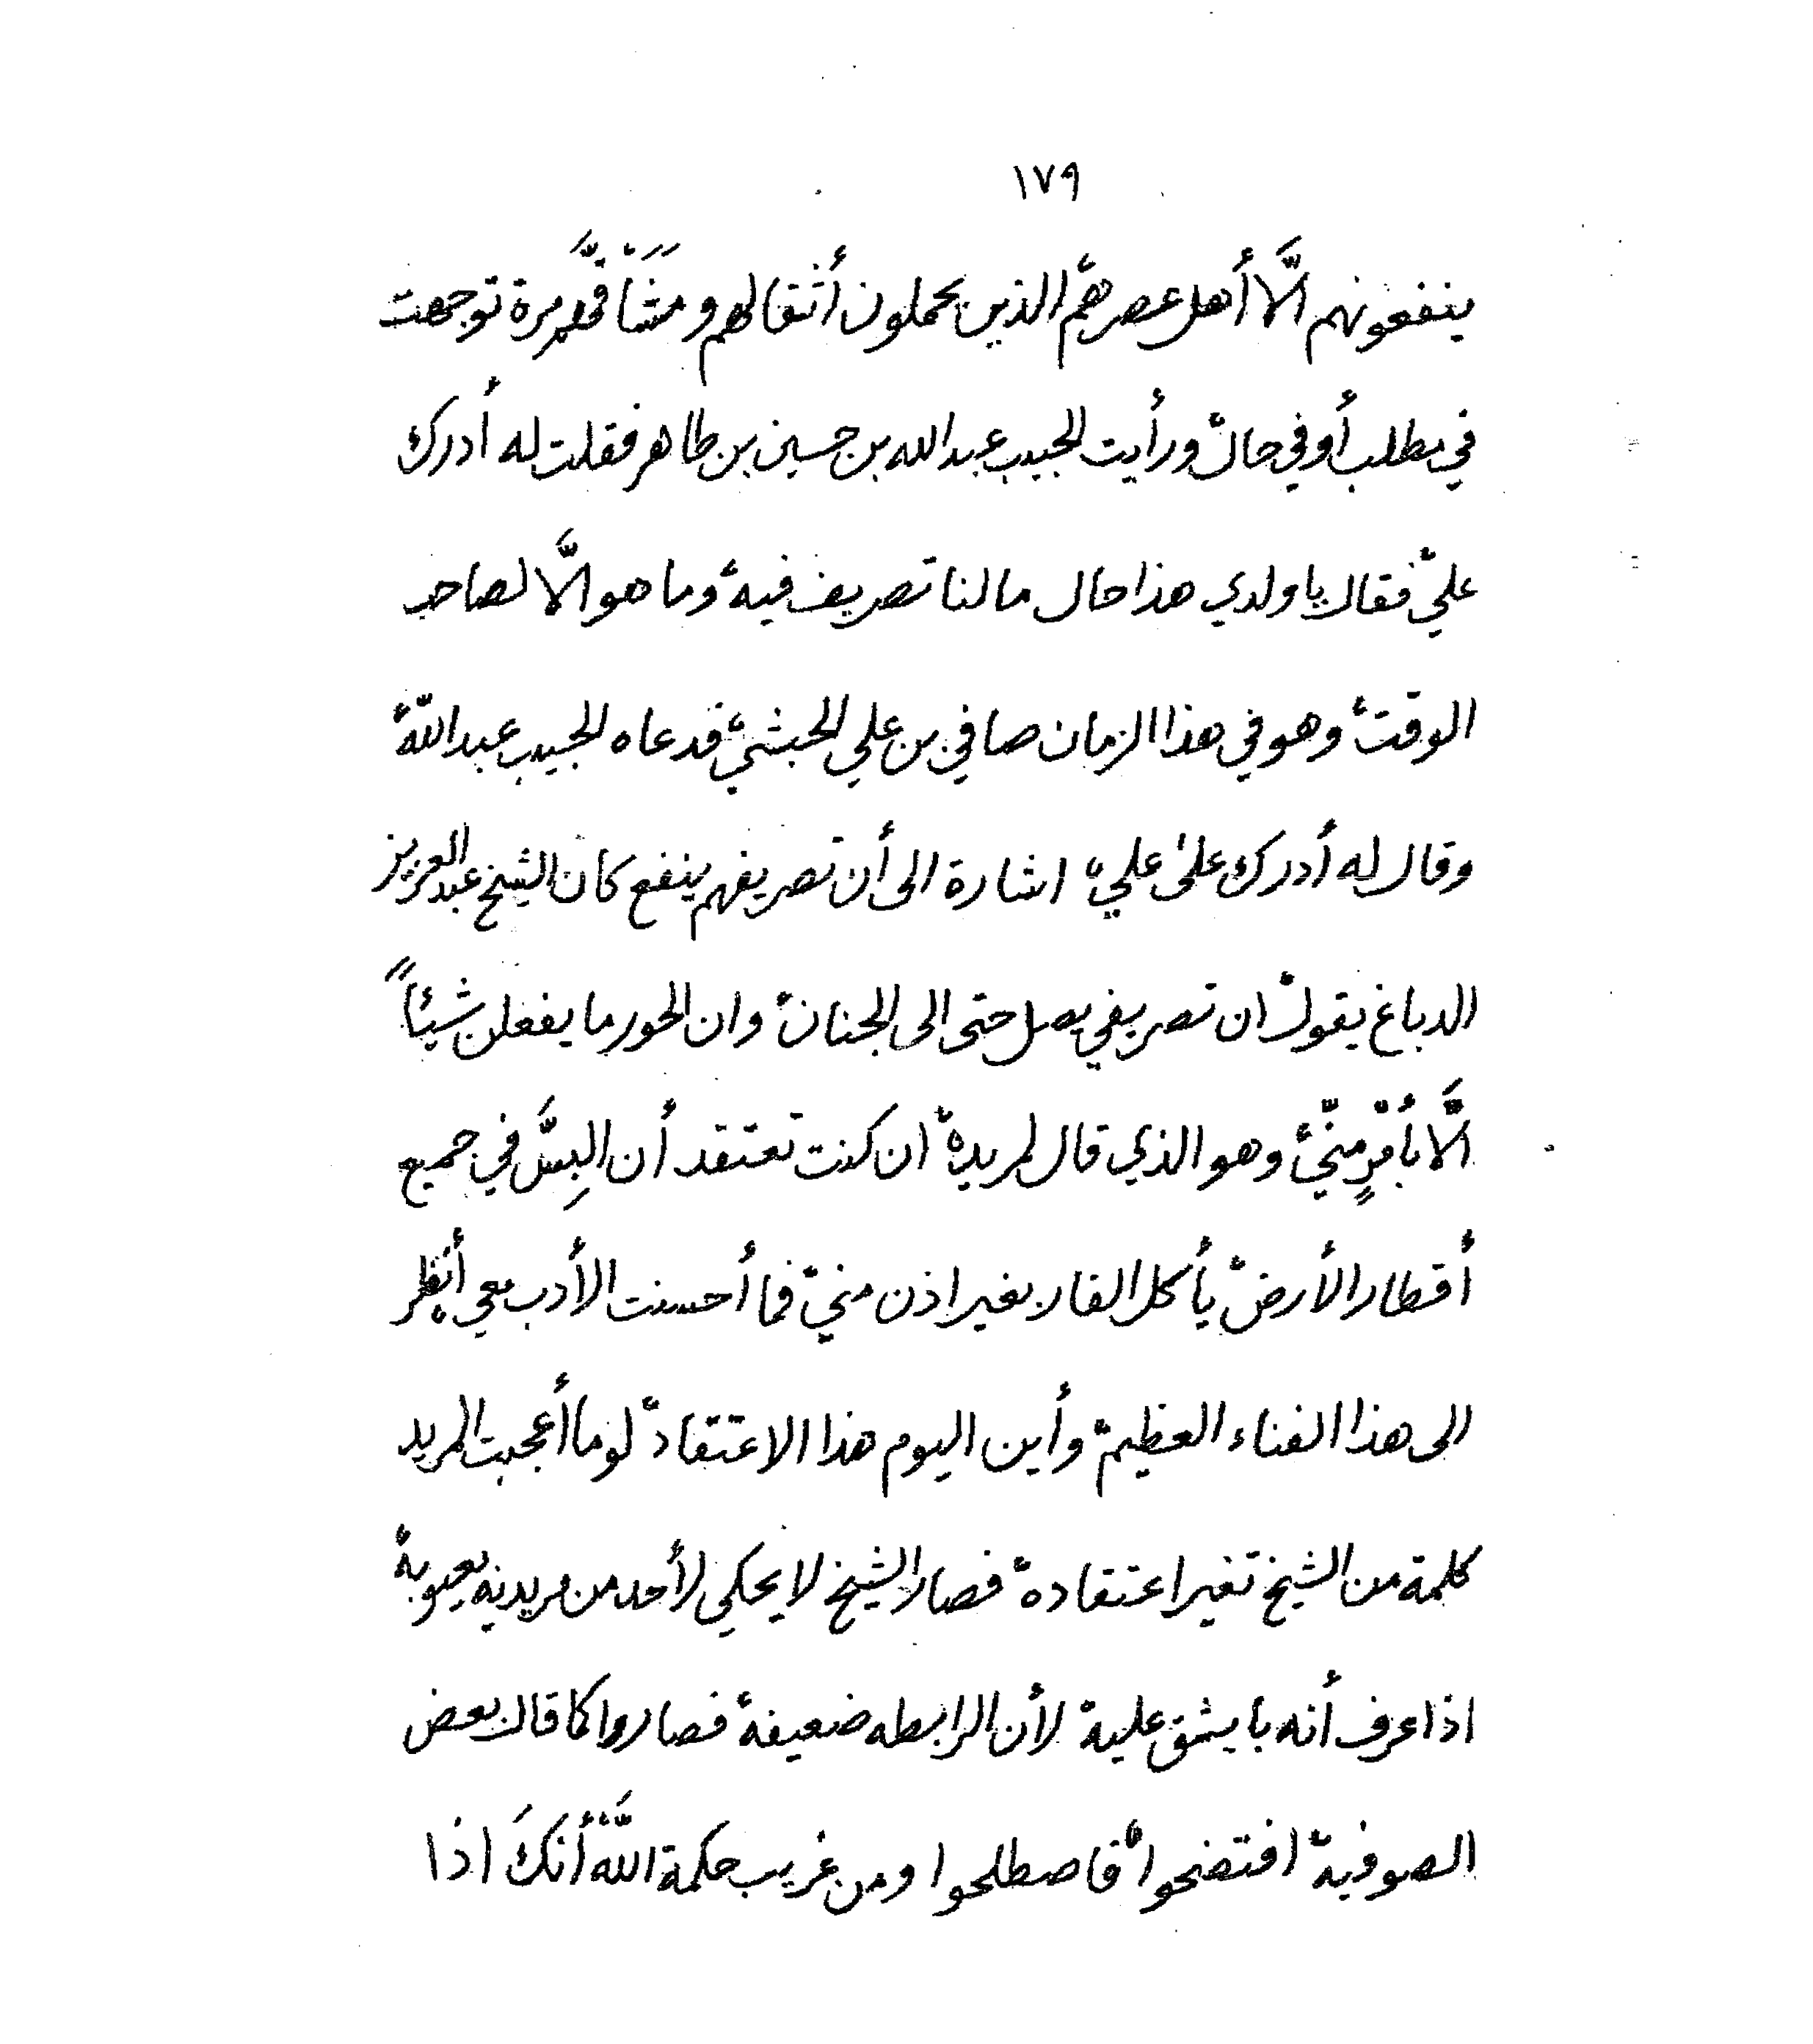 ١٧٩
ينفعونهم الَّا أهل عصرهم الذين يحملون أثقالهم ومشَا مرة توجهت
في مطلب أو في حال ورأيت الحبيب عبدالله بن حسين بن طاهر فقلت له أدرك
عليّ فقال يا ولدي هذا حال مالنا تصريف فيه وما هو الَّا لصاحب
الوقت وهو في هذا الزمان صافي بن علي الحبشي فدعاه الحبيب عبدالله
وقال له أدرك على علي اشارة الى أن تصريفهم ينفع كان الشيخ عبدالعزيز
الدباغ يقول ان تصريفي يصل حتى الى الجنان وان الحور ما يفعلن شيئاً
الَّا بأمْرٍ منّي وهو الذي قال لمريده ان كنت تعتقد أن البِسَّ في جميع
أقطار الأرض يأكل الفار بغير اذن مني فما أحسنت الأدب معي أنظر
الى هذا الفناء العظيم وأين اليوم هذا الاعتقاد لو ما أعجبت المريد
كلمة من الشيخ تغير اعتقاده فصار الشيخ لا يحكي لأحد من مريدينه بعيوبه
اذا عرف أنه با يشق عليه لأن الرابطه ضعيفة فصاروا كما قال بعض
الصوفية افتضحوا فاصطلحوا ومن غريب حكمة اللَّه أنكَ اذا